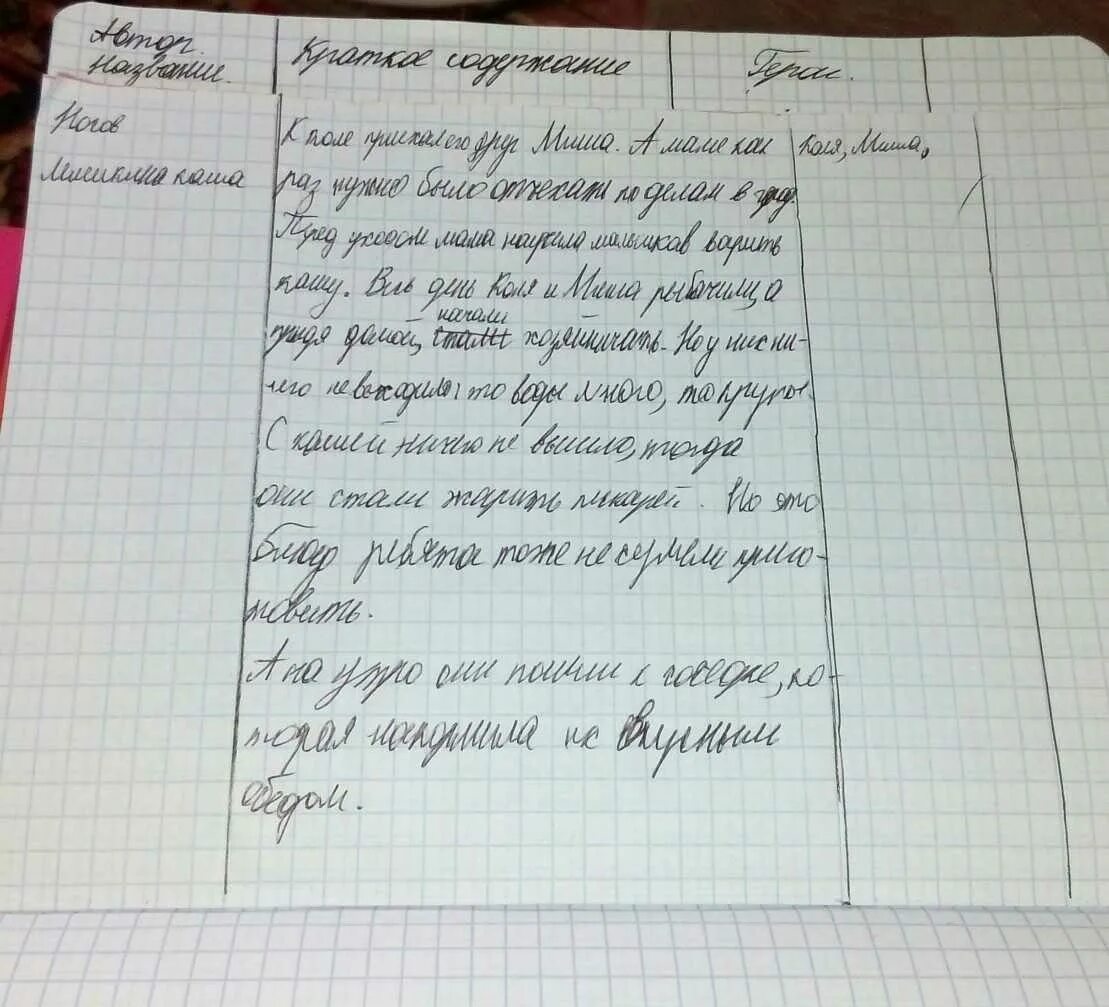 Автор.
название.
Краткое содержание
Герои.
Носов
Мишкина каша
К коле приехал его друг Миша. А маме как
раз нужно было отъехать по делам в город.
Перед уходом мама научила мальчиков варить
кашу. Весь день Коля и Миша рыбачили, а
придя домой, начали хозяйничать. Но у них ни-
чего не выходило: то воды много, то крупы.
С кашей ничего не вышло, тогда
они стали жарить пискарей. Но это
блюдо ребята тоже не сумели приго-
товить.
А на утро они пошли к соседке, ко-
торая накормила их вкусным
обедом.
Коля, Миша,